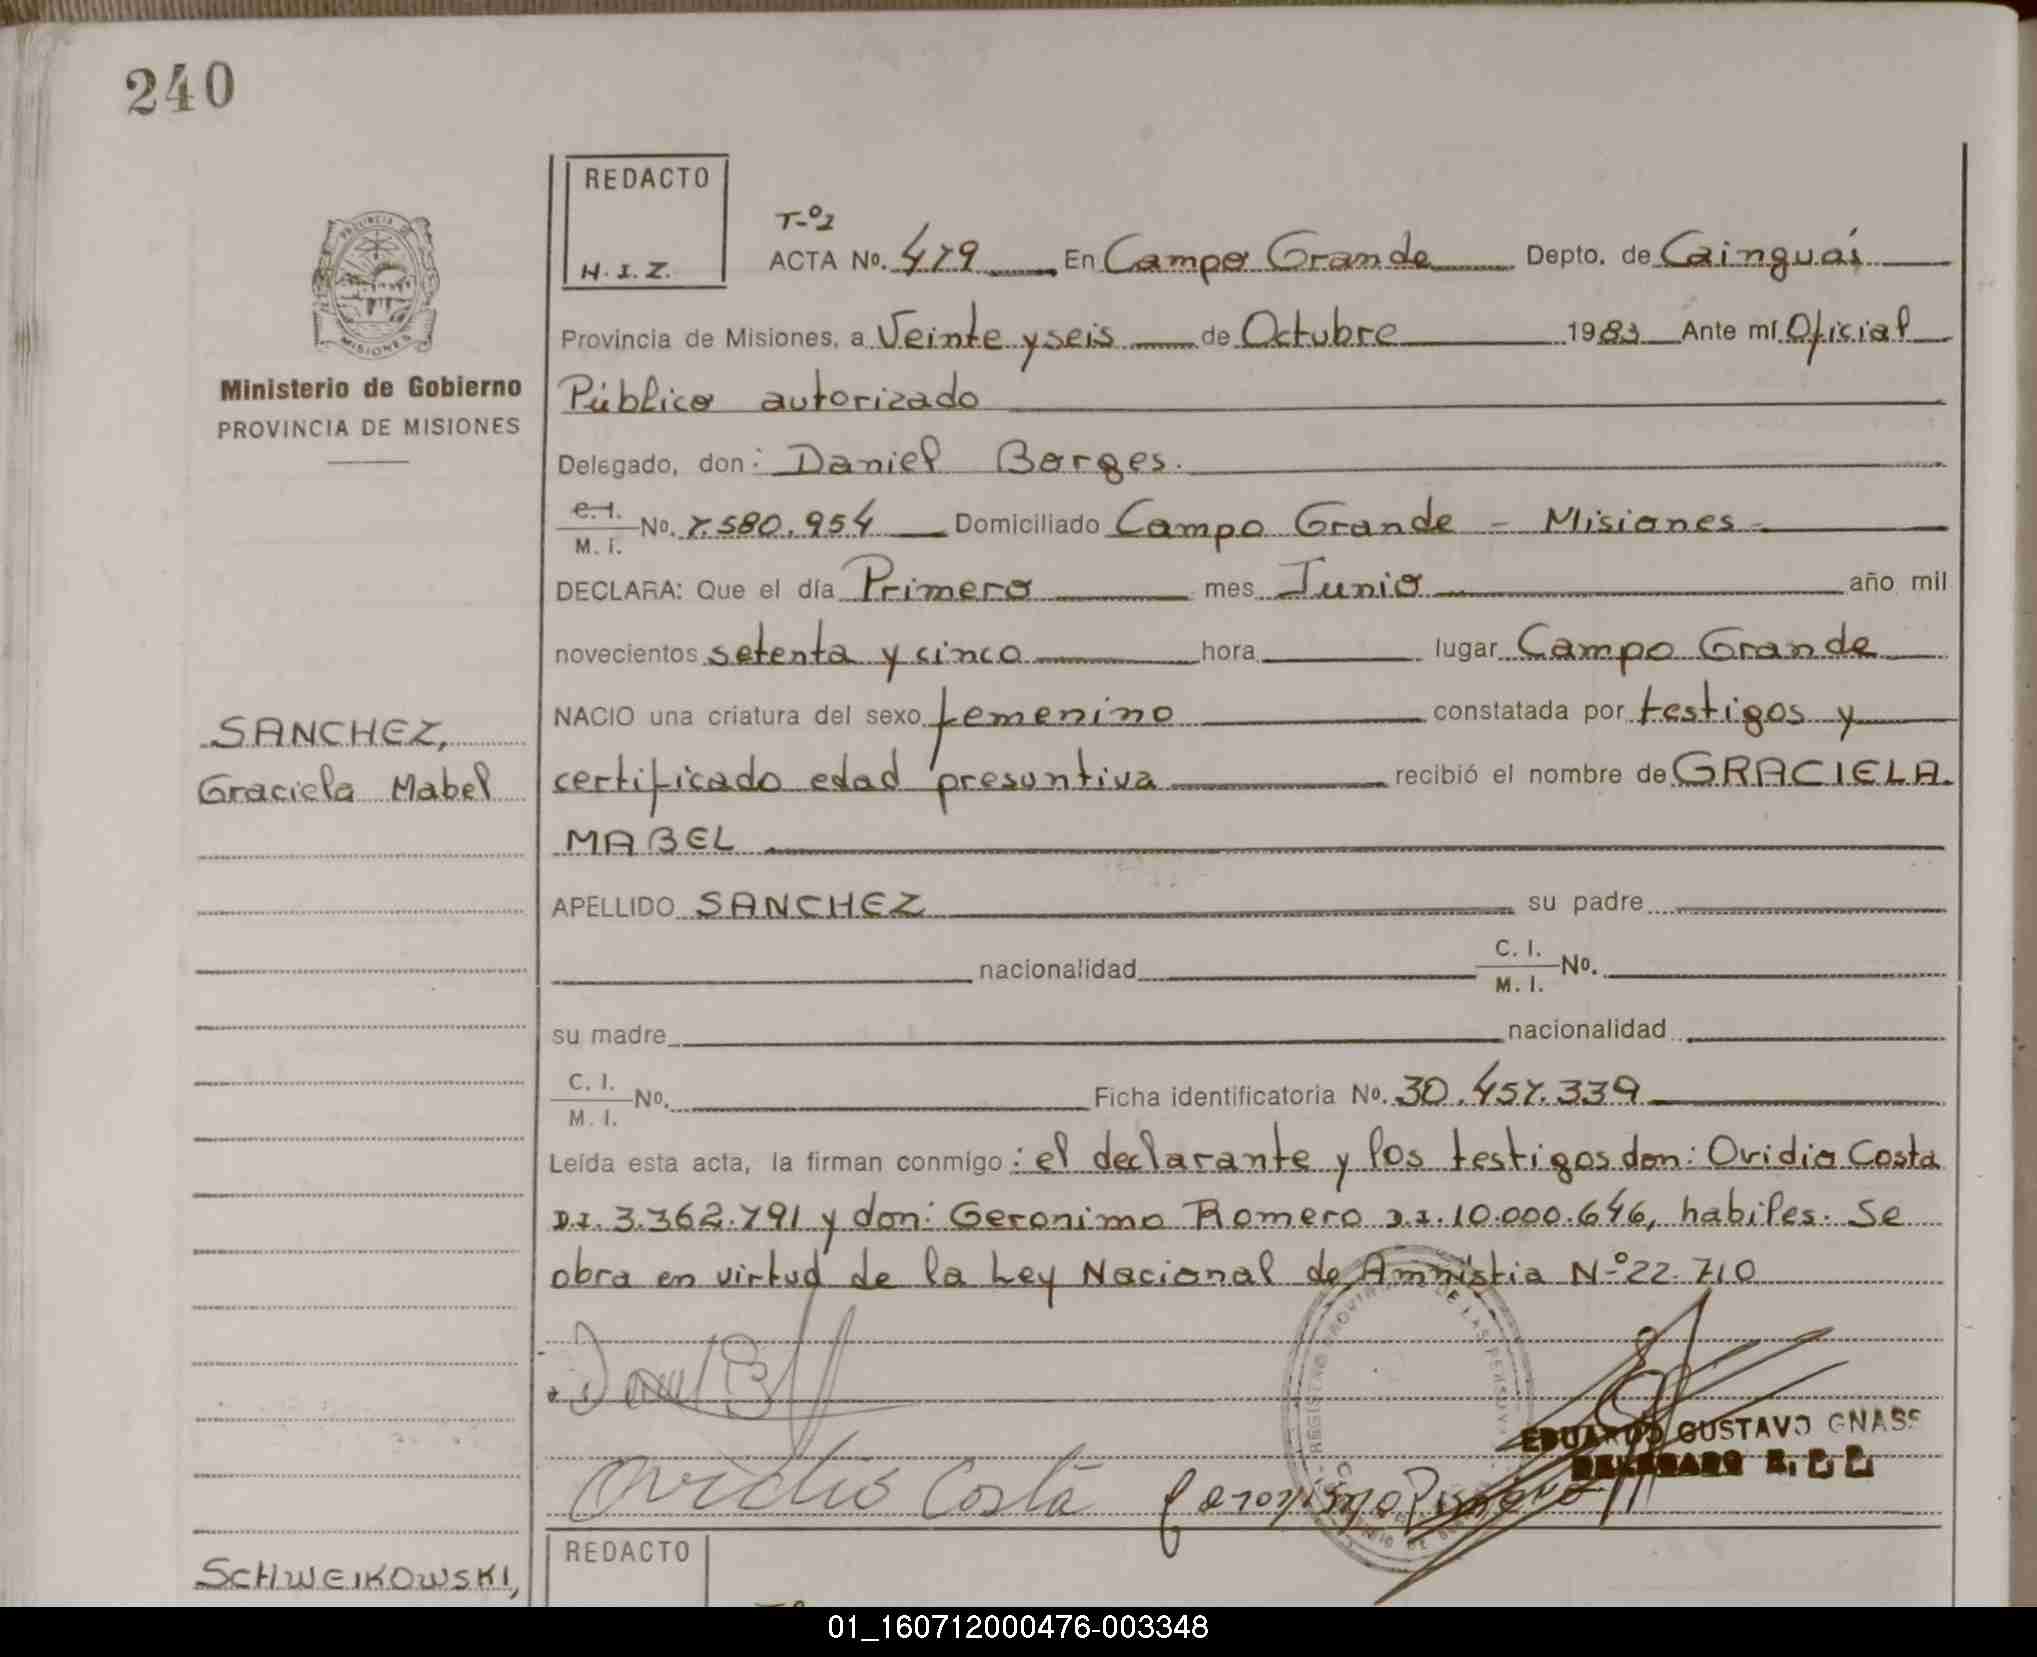 240
REDACTO
H.I.Z.
PROVINCIA DE
MISIONES
Ministerio de Gobierno
PROVINCIA DE MISIONES
T-º1
ACTA No. 479 En Campo Grande Depto. de Cainguás
Provincia de Misiones, a Veinte y seis de Octubre 1983 Ante mí Oficial
Público autorizado
Delegado, don: Daniel Borges.
C.I. / M. I. No. 7.580.954 Domiciliado Campo Grande - Misiones -
DECLARA: Que el día Primero mes Junio año mil
novecientos setenta y cinco hora lugar Campo Grande
NACIO una criatura del sexo femenino constatada por testigos y
certificado edad presuntiva recibió el nombre de GRACIELA.
MABEL
APELLIDO SANCHEZ su padre
nacionalidad C. I. / M. I. No.
su madre nacionalidad
C. I. / M. I. No. Ficha identificatoria No. 30.457.339
Leída esta acta, la firman conmigo: el declarante y los testigos don: Ovidio Costa
D.I. 3.362.791 y don: Geronimo Romero D.I. 10.000.646, habiles. Se
obra en virtud de la Ley Nacional de Amnistia N-º22.710
SANCHEZ,
Graciela Mabel
Ovidio Costa
Geronimo Romero
EDUARDO GUSTAVO GNASS
DELEGADO
SCHWEIKOWSKI,
REDACTO
01_160712000476-003348